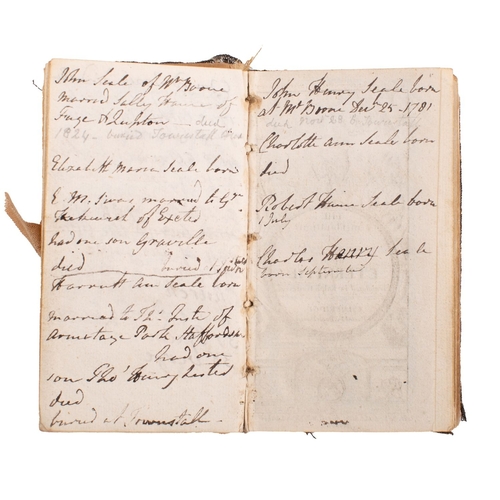 John Seale of Mt Boone
married Sally Haine of
Fuge & Lupton died
1824 buried Townstall
Elizabeth Maria Seale born
E. M. S was married to
of Exeter
had one son Graville
died buried
Harriett Ann Seale born
married to Thos. of
Armitage Park Staffordsh.
had one
son Thos.
died
buried at Townstall
John Henry Seale born
at Mt Boone Decr 25. 1781
died Novr 23
Charlotte Ann Seale born
died
Robert Hine Seale born
July
Charles Hayne Seale
born September